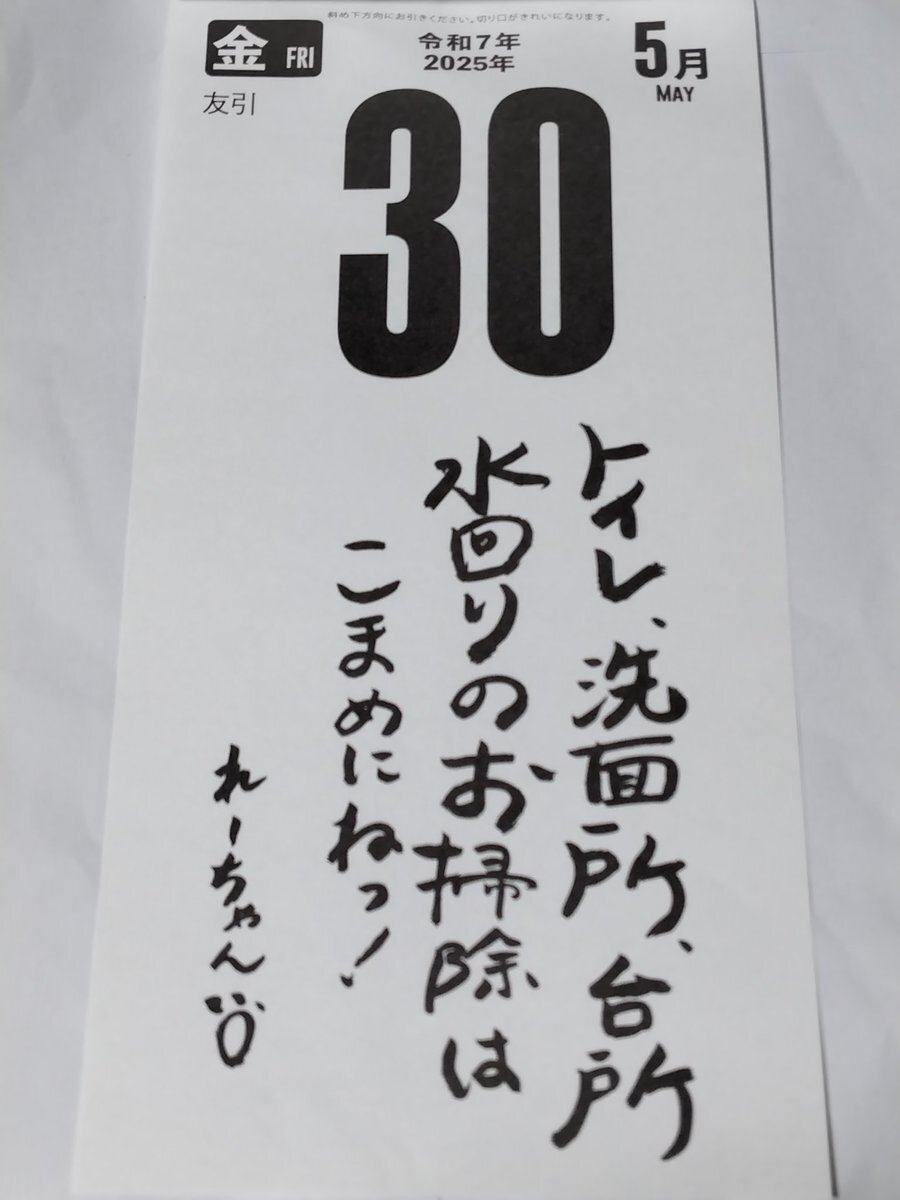 斜め下方向にお引きください。切り口がきれいになります。
金 FRI
令和7年
2025年
5月
MAY
友引
30
トイレ、洗面所、台所
水回りのお掃除は
こまめにねっ!
れーちゃん